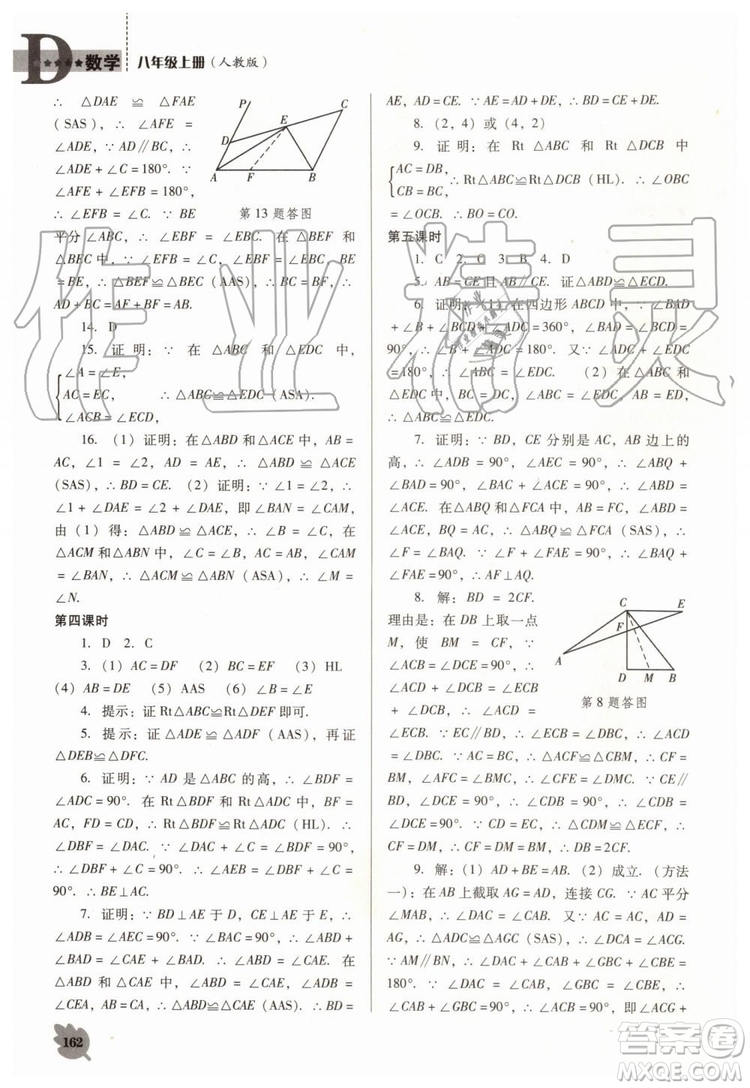 D 数学 八年级上册(人教版)
∴ △DAE ≌ △FAE
(SAS),∴ ∠AFE =
∠ADE,∵ AD∥BC,∴
∠ADE + ∠C = 180°. ∵
∠AFE + ∠EFB = 180°,
∴ ∠EFB = ∠C. ∵ BE
P E C D A F B
第 13 题答图
平分 ∠ABC,∴ ∠EBF = ∠EBC. 在 △BEF 和
△BEC 中,∵ ∠EFB = ∠C,∠EBF = ∠EBC,BE
= BE,∴ △BEF ≌ △BEC (AAS),∴ BC = BF,
∴ AD + BC = AF + BF = AB.
14. D
15. 证明:在 △ABC 和 △EDC 中,
∠A = ∠E,
AC = EC, ∴ △ABC≌△EDC (ASA).
∠ACB = ∠ECD,
16. (1) 证明:在 △ABD 和 △ACE 中,AB =
AC,∠1 = ∠2,AD = AE,∴ △ABD ≌ △ACE
(SAS),∴ BD = CE. (2) 证明:∵ ∠1 = ∠2,∴
∠1 + ∠DAE = ∠2 + ∠DAE,即 ∠BAN = ∠CAM,
由 (1) 得:△ABD ≌ △ACE,∴ ∠B = ∠C,在
△ACM 和 △ABN 中,∠C = ∠B,AC = AB,∠CAM
= ∠BAN,∴ △ACM ≌ △ABN (ASA),∴ ∠M =
∠N.
第四课时
1. D 2. C
3. (1) AC = DF (2) BC = EF (3) HL
(4) AB = DE (5) AAS (6) ∠B = ∠E
4. 提示:证 Rt△ABC≌Rt△DEF 即可.
5. 提示:证 △ADE ≌ △ADF (AAS),再证
△DEB≌△DFC.
6. 证明:∵ AD 是 △ABC 的高,∴ ∠BDF =
∠ADC = 90°. 在 Rt △BDF 和 Rt △ADC 中,BF =
AC,FD = CD,∴ Rt △BDF ≌ Rt △ADC (HL). ∴
∠DBF = ∠DAC. ∵ ∠AFE = ∠BFD,∠DBF +
∠BFD = 90°,∴ ∠AEB = ∠BDF = 90°,
∴ BE⊥AC.
7. 证明:∵ BD ⊥ AE 于 D,CE ⊥ AE 于 E,∴
∠ADB = ∠AEC = 90°. ∵ ∠BAC = 90°,∴
∠ABD + ∠BAD = ∠CAE + ∠BAD,∴ ∠ABD =
∠CAE. 在 △ABD 和 △CAE 中,∠ABD = ∠CAE,∠ADB =
∠CEA,AB = AC,∴ △ABD≌△CAE (AAS). ∴ BD =
AE,AD = CE. ∵ AE = AD + DE,∴ BD = CE + DE.
8. (2,4) 或 (4,2)
9. 证明:在 Rt △ABC 和 Rt △DCB 中
AC = DB,
CB = BC, ∴ Rt △ABC≌Rt △DCB (HL). ∴ ∠OBC
= ∠OCB. ∴ BO = CO.
第五课时
1. C 2. C 3. B 4. D
5. AB = CE 且 AB∥CE. 证△ABD≌△ECD.
6. 证明:(1) 在四边形 ABCD 中,∵ ∠BAD
+ ∠B + ∠BCD + ∠ADC = 360°,∠BAD = ∠BCD =
90°,∴ ∠B + ∠ADC = 180°. 又∵ ∠ADC + ∠EDC
= 180°,∴ ∠ABC = ∠EDC. (2) 在 △ABC 和
△EDC 中,BC = DC,∠ABC = ∠EDC,AB = ED,∴
△ABC≌△EDC.
7. 证明:∵ BD,CE 分别是 AC,AB 边上的
高,∴ ∠ADB = 90°,∠AEC = 90°,∴ ∠ABQ +
∠BAD = 90°,∠BAC + ∠ACE = 90°,∴ ∠ABD =
∠ACE. 在 △ABQ 和 △FCA 中,∵ ∠ABD =
∠ACE,BQ = AC,∴ △ABQ ≌ △FCA (SAS),∴
∠F = ∠BAQ. ∵ ∠F + ∠FAE = 90°,∴ ∠BAQ +
∠FAE = 90°. ∴ AF⊥AQ.
8. 解:BD = 2CF.
理由是:在 DB 上取一点
M,使 BM = CF,∵
∠ACD + ∠BCD = 90°,
∠DCE = 90°,∴ ∠BCD
+ ∠ACD = ∠BCD +
C E F A D M B
第 8 题答图
9. 解:(1) AD + BE = AB. (2) 成立. (方法
一):在 AB 上截取 AG = AD,连接 CG. ∵ AC 平分
∠MAB,∴ ∠DAC = ∠CAB. 又∵ AC = AC,AD =
AG,∴ △ADC ≌ △AGC (SAS),∴ ∠DCA = ∠ACG.
∵ AM∥BN,∴ ∠DAC + ∠CAB + ∠GBC + ∠CBE =
180°. ∵ ∠DAC = ∠CAB,∠GBC = ∠CBE,∴
∠CAB + ∠GBC = 90°,∴ ∠ACB = 90°,即∠ACG +
162
作业精灵
答案圈
MXQE.COM